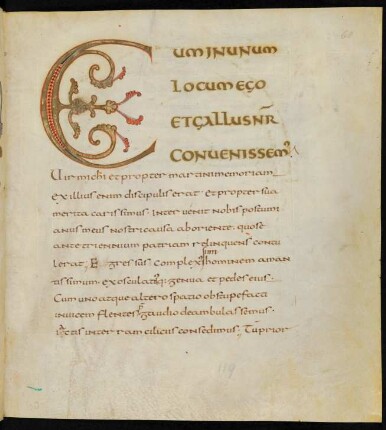 CUMINUNUM
LOCUM EGO
ET GALLUS NR̄
CONVENISSEM;
Uir michi et propter martini memoriam
ex illius enim discipulis erat. et propter sua
merita carissimus. inter venit nobis postumi
anus meus nostri causa ab oriente. quo se
ante triennium patriam relinquens contu
lerat. Egressus complexus hominem aman
tissimum exosculatusq; genua et pedes eius.
Cum uno atque altero spatio obstupefacti
invicem flentes p̄ gaudio deambulassemus.
iactis in terram cilicus consedimus; Tum prior